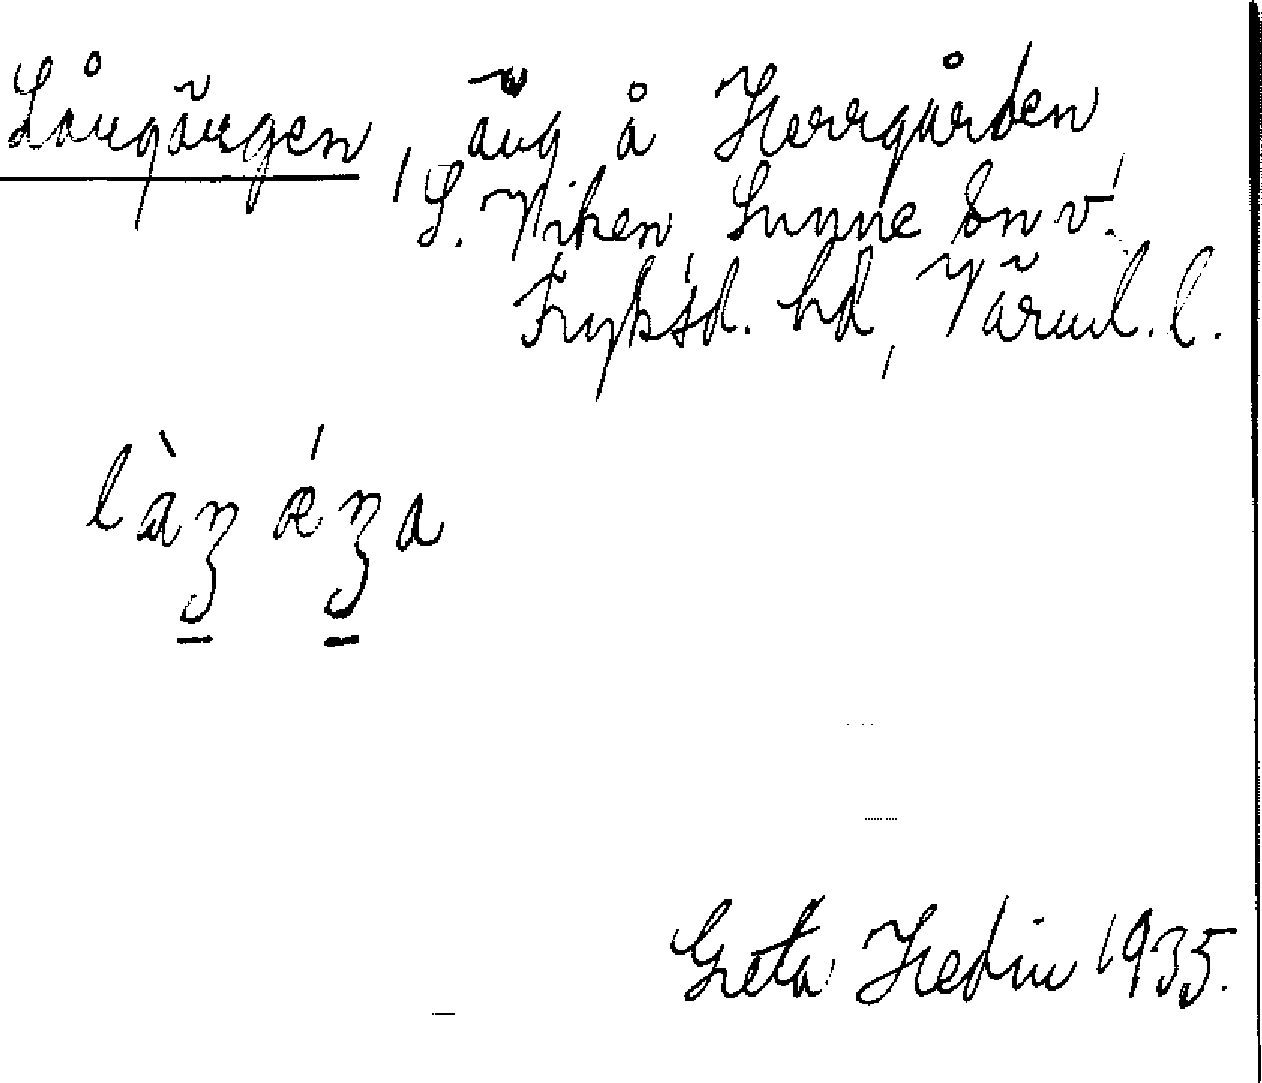 Långängen, äng å Herrgården,
S. Viken, Sunne sn v.
Fryksd. hd, Värml. l.
làŋ ǽŋa
Greta Hedin 1935.